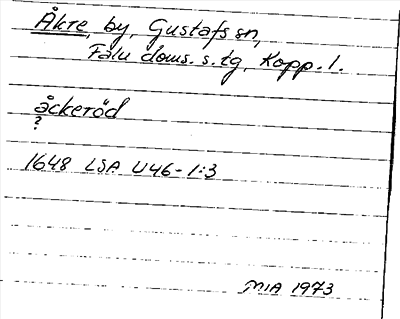 Åkte, by, Gustafs sn,
Falu doms. s. tg, Kopp. l.
åckeröd
?
1648 LSA U46-1:3
MIA 1973